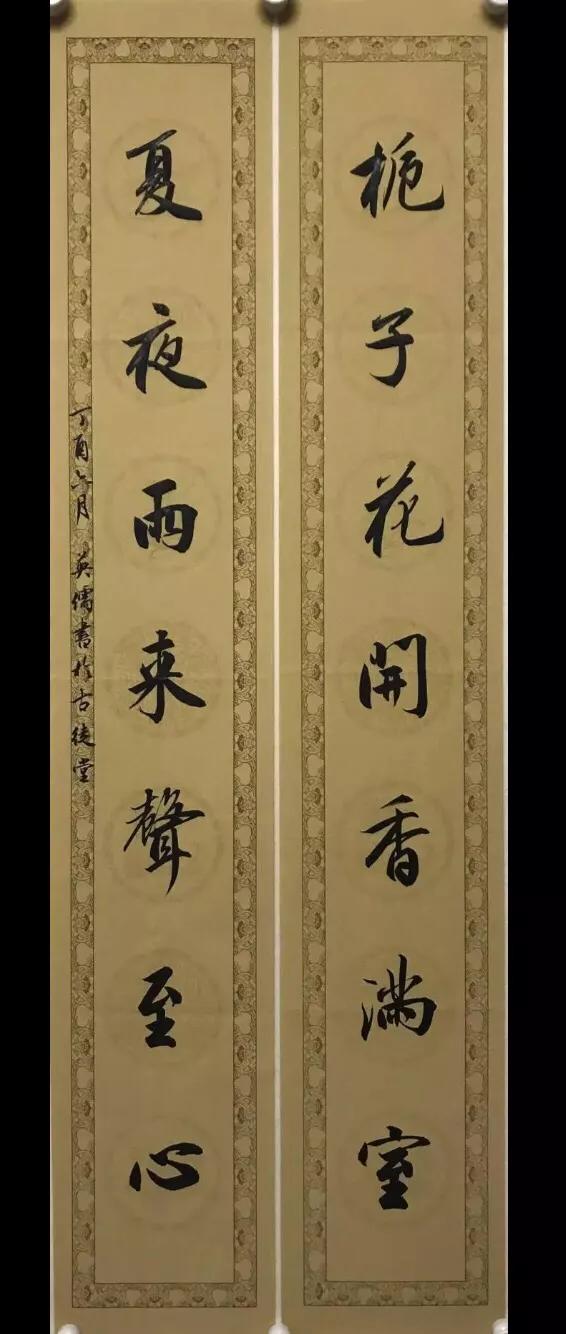 栀子花開香滿室
夏夜雨来聲至心
丁酉六月 英儒書於古徒堂